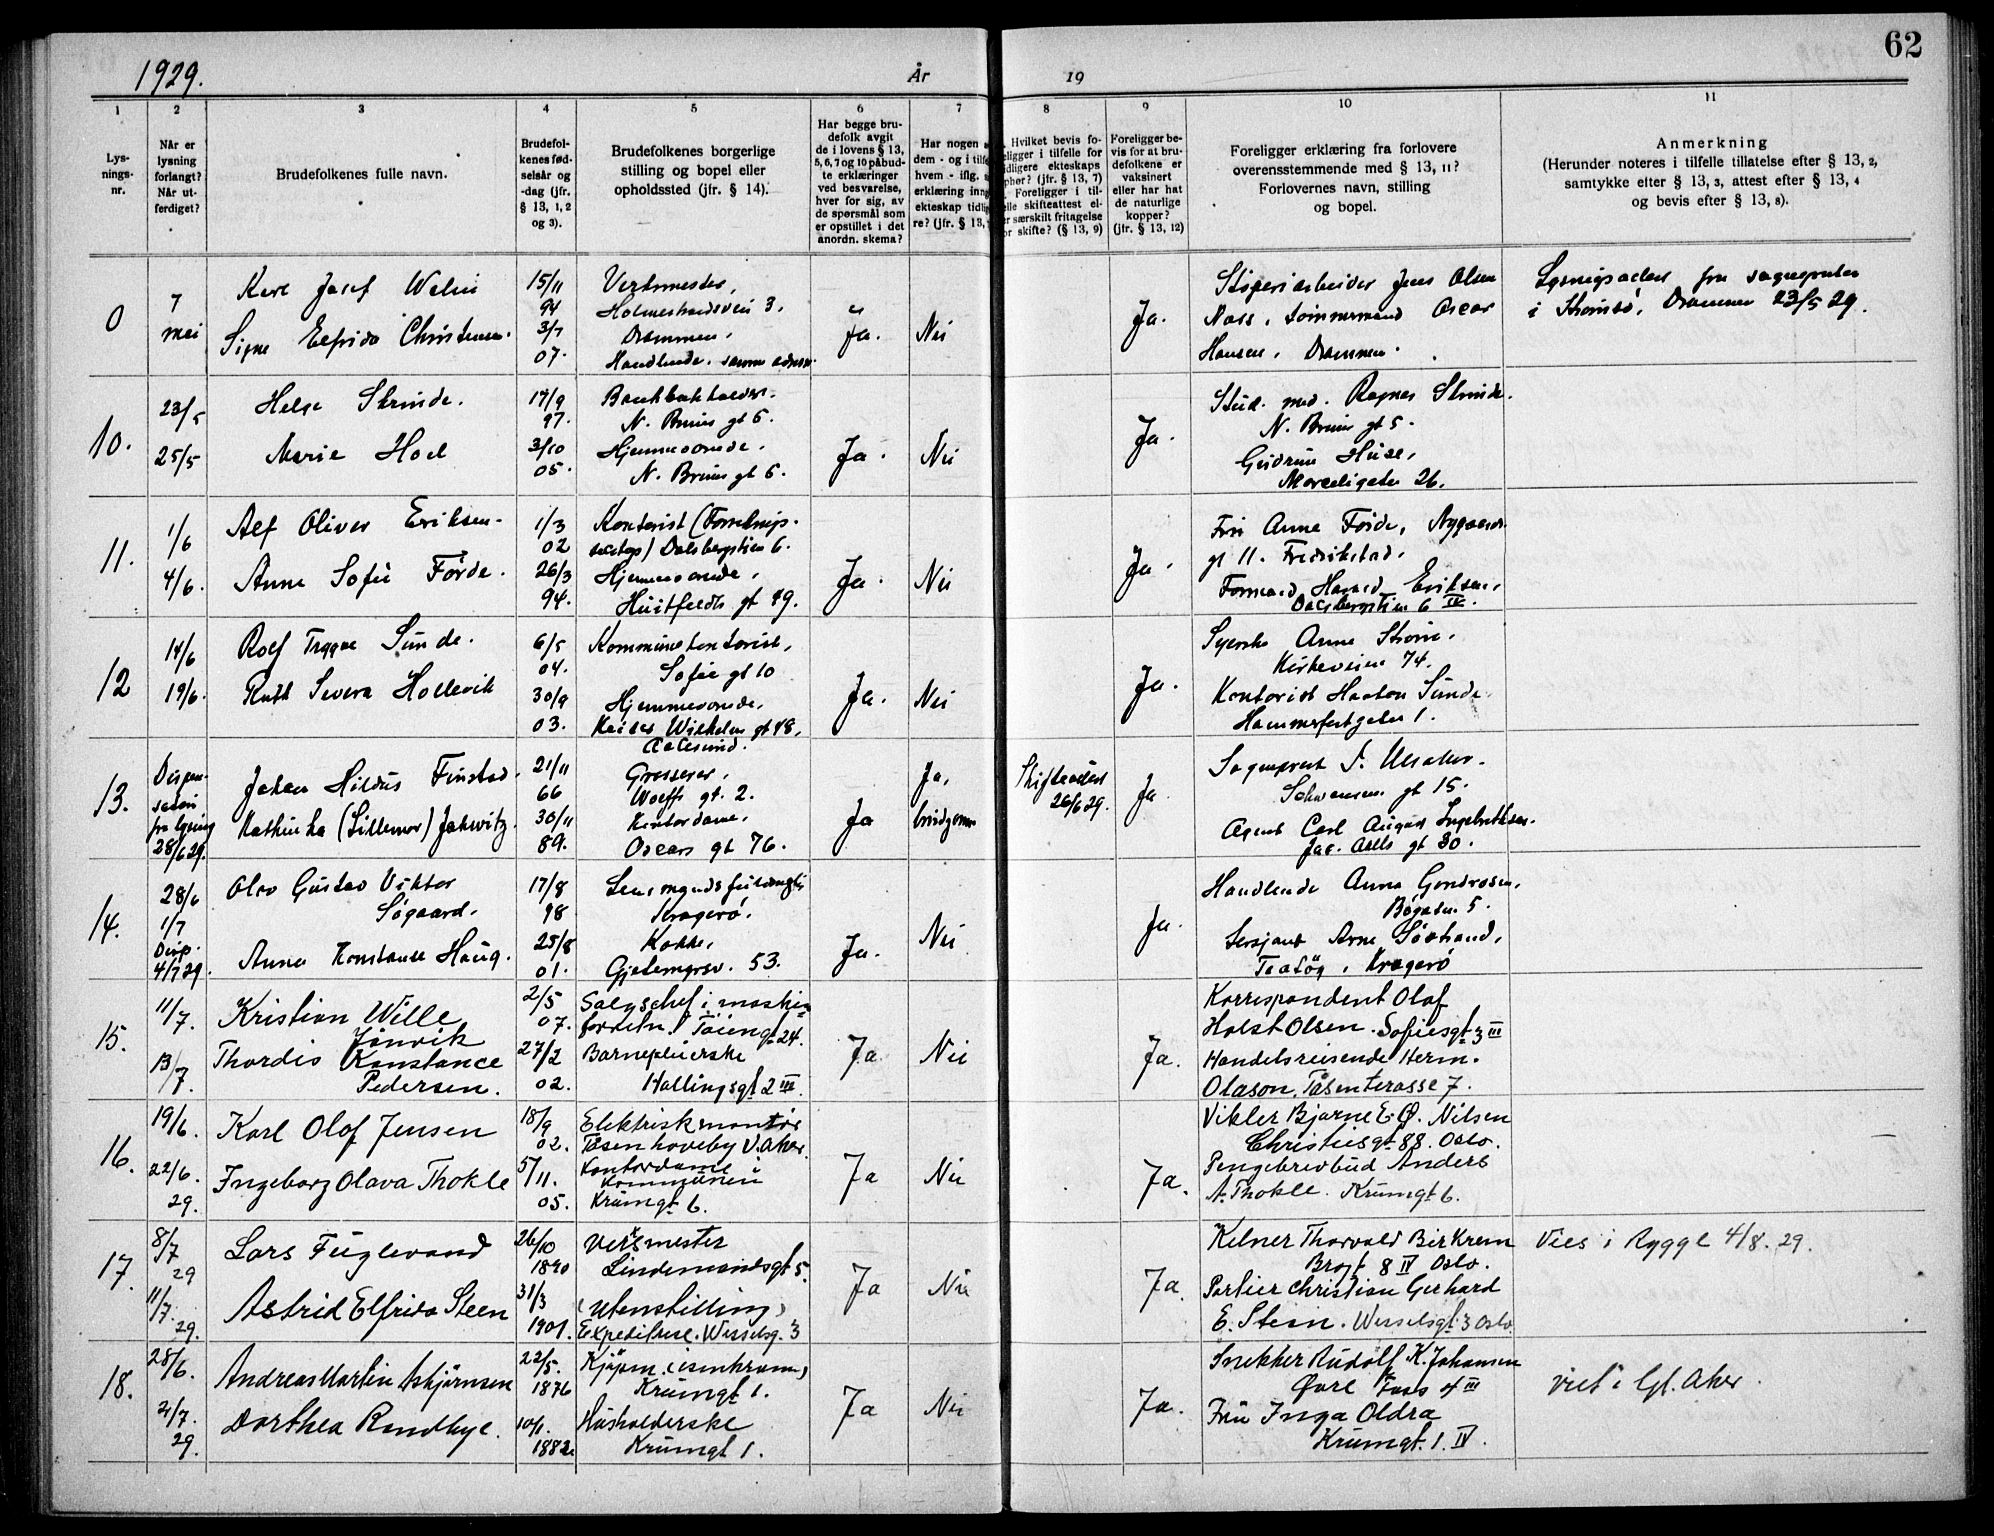 62
1929.
År
19
1
2
3
4
5
6
7
8
9
10
11
Lys-
nings-
nr.
Når er
lysning
forlangt?
Når ut-
ferdiget?
Brudefolkenes fulle navn.
Brudefol-
kenes fød-
selsår og
-dag (jfr.
§ 13, 1, 2
og 3).
Brudefolkenes borgerlige
stilling og bopel eller
opholdssted (jfr. § 14).
Har begge bru-
defolk avgit
de i lovens § 13,
5, 6, 7 og 10 påbud-
te erklæringer
ved besvarelse,
hver for sig, av
de spørsmål som
er opstillet i det
anordn. skema?
Har nogen
dem - og i tilfe
hvem - iflg.
erklæring inng
ekteskap tidlig
re? (jfr. § 13,
Hvilket bevis fo-
religger i tilfelle for
idligere ekteskaps
phør? (jfr. § 13, 7)
Foreligger i til-
elle skifteattest el-
er særskilt fritagelse
or skifte? (§ 13, 9)
Foreligger be-
vis for at bru-
defolkene er
vaksinert
eller har hat
de naturlige
kopper?
(jfr. § 13, 12)
Foreligger erklæring fra forlovere
overensstemmende med § 13, 11?
Forlovernes navn, stilling
og bopel.
Anmerkning
(Herunder noteres i tilfelle tillatelse efter § 13, 2,
samtykke efter § 13, 3, attest efter § 13, 4
og bevis efter § 13, 8).
0
7
mai
Karl Josef Welin
Signe Elfrida Christensen.
15/11
94
3/7
07.
Verkmester,
Holmestrandsveien 3,
Drammen,
Handlende. samme adresse
Ja.
Nei
Ja.
Støperiarbeider Jens Olsen
Næss, Tømmermand Oscar
Hansen, Drammen.
Lysningsattest fra sognepresten
i Strømsø, Drammen 23/5 29.
10.
23/5
25/5
Helge Strinde.
Marie Hoel
17/9
97.
3/10
05.
Bankbokholder.
N. Bruns gt 6.
Hjemmeværende.
N. Bruns gt 6.
Ja.
Nei
Ja.
Stud. med. Ragnar Strinde.
N. Bruns gt 5.
Gudrun Huse,
Marseligaten 26.
11.
1/6
4/6.
Alf Oliver Eriksen.
Anna Sofie Førde.
1/3
02
26/3
94.
Kontorist (Forretnings-
Dalsbergstien 6.
Hjemmeværende,
Huitfeldts gt 49.
Ja.
Nei
Ja.
Fru Anne Førde, Nygaards-
gt 11. Fredrikstad,
Formand Harald Eriksen,
Dalsbergstien 6 IV.
12
14/6
19/6.
Rolf Trygve Sunde.
Ruth Severa Hollevik
6/5
04.
30/9
03.
Kommunekontorist,
Sofie gt 10
Hjemmeværende,
Keiser Wilhelms gt 48,
Aalesund.
Ja.
Nei
Ja.
Syerske Anna Strøm,
Kirkeveien 74.
Kontorist Haakon Sunde.
Hammerfestgaten 1.
13.
Dispen-
sation
fra lysning
28/6 29.
Johan Hildus Finstad.
Kathinka (Lillemor) Jakwitz.
21/11
66
30/11
89.
Grosserer,
Wolffs gt. 2.
Kontordame,
Oscars gt 76.
Ja
Ja,
brudgommen
Skifteattest
26/6 29.
Ja
Sogneprest
Schwensens gt 15.
Agent Carl August Ingebretsen.
Jac. Aalls gt 30.
14.
28/6
1/7
Disp.
4/7 29.
Olav Gustav Viktor
Søgaard.
Anna Konstanse Haug.
17/8
98
25/8
01.
Lensmandsfuldmægtig
Kragerø.
Kokke,
Gjetemyrsv. 53.
Ja.
Nei
Ja.
Handlende Anna Gondrosen,
Bøgaten 5.
Sersjant Arne Søstrand,
Taatøy, Kragerø
15.
11/7.
13/7.
Kristian Wille
Jønvik
Thordis Konstance
Pedersen.
2/5
07.
27/2
02.
Salgschef i maskin-
forretn. Tøiengt 24.
Barnepleierske
Hallingsgt 2 III.
Ja
Nei
Ja.
Korrespondent Olaf
Holst Olsen. Sofiesgt 3 III
Handelsreisende Herm.
Olason, Tåsenterasse 7.
16.
19/6.
22/6.
29.
Karl Olof Jensen
Ingeborg Olava Thokle
18/9
02.
5/11.
05.
Elektriskmontør
Tåsen haveby V. Aker.
Kontordame i
Kommunen
Krumgt 6.
Ja
Nei
Ja.
Vikler Bjarne E. Ø. Nilsen
Christiesgt 88. Oslo.
Pengebrevbud Anders
A. Thokle. Krumgt 6.
17.
8/7
29
11/7.
29.
Lars Fuglevand
Astrid Elfrida Steen
26/10
1890
31/3
1901.
Verksmester
Lindemansgt 5.
(utenstilling)
Expeditrise. Wesselsg. 3
Ja
Nei
Ja.
Kelner Thorvald Birkrem
Brogt 8 IV Oslo.
Portier Christian Gerhard
E. Steen. Wesselsgt 3 Oslo
Vies i Rygge 4/8. 29.
18.
28/6.
2/7.
29.
Andreas Martin Asbjørnsen
Dorthea Rundhye.
22/5.
1876
10/1.
1882
Kjøpm. (isenkram)
Krumgt 1.
Husholderske
Krumgt 1.
Ja
Nei
Ja.
Snekker Rudolf K. Johansen
Øvre Foss 4 III
Fru Inga Oldra
Krumgt. 1. IV.
viet i Gl. Aker.